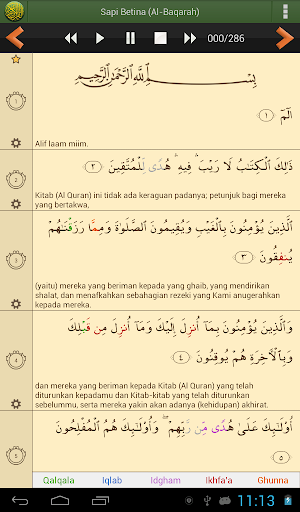 Sapi Betina (Al-Baqarah)
000/286
بِسْمِ ٱللَّهِ ٱلرَّحْمَٰنِ ٱلرَّحِيمِ
الٓمٓ ١
Alif laam miim.
ذَٰلِكَ ٱلْكِتَٰبُ لَا رَيْبَ ۛ فِيهِ ۛ هُدًى لِّلْمُتَّقِينَ ٢
Kitab (Al Quran) ini tidak ada keraguan padanya; petunjuk bagi mereka
yang bertakwa.
ٱلَّذِينَ يُؤْمِنُونَ بِٱلْغَيْبِ وَيُقِيمُونَ ٱلصَّلَوٰةَ وَمِمَّا رَزَقْنَٰهُمْ
يُنفِقُونَ ٣
(yaitu) mereka yang beriman kepada yang ghaib, yang mendirikan
shalat, dan menafkahkan sebahagian rezeki yang Kami anugerahkan
kepada mereka.
وَٱلَّذِينَ يُؤْمِنُونَ بِمَآ أُنزِلَ إِلَيْكَ وَمَآ أُنزِلَ مِن قَبْلِكَ
وَبِٱلْءَاخِرَةِ هُمْ يُوقِنُونَ ٤
dan mereka yang beriman kepada Kitab (Al Quran) yang telah
diturunkan kepadamu dan Kitab-kitab yang telah diturunkan
sebelummu, serta mereka yakin akan adanya (kehidupan) akhirat.
أُو۟لَٰٓئِكَ عَلَىٰ هُدًى مِّن رَّبِّهِمْ ۖ وَأُو۟لَٰٓئِكَ هُمُ ٱلْمُفْلِحُونَ
٥
Qalqala Iqlab Idgham Ikhfa'a Ghunna
11:13